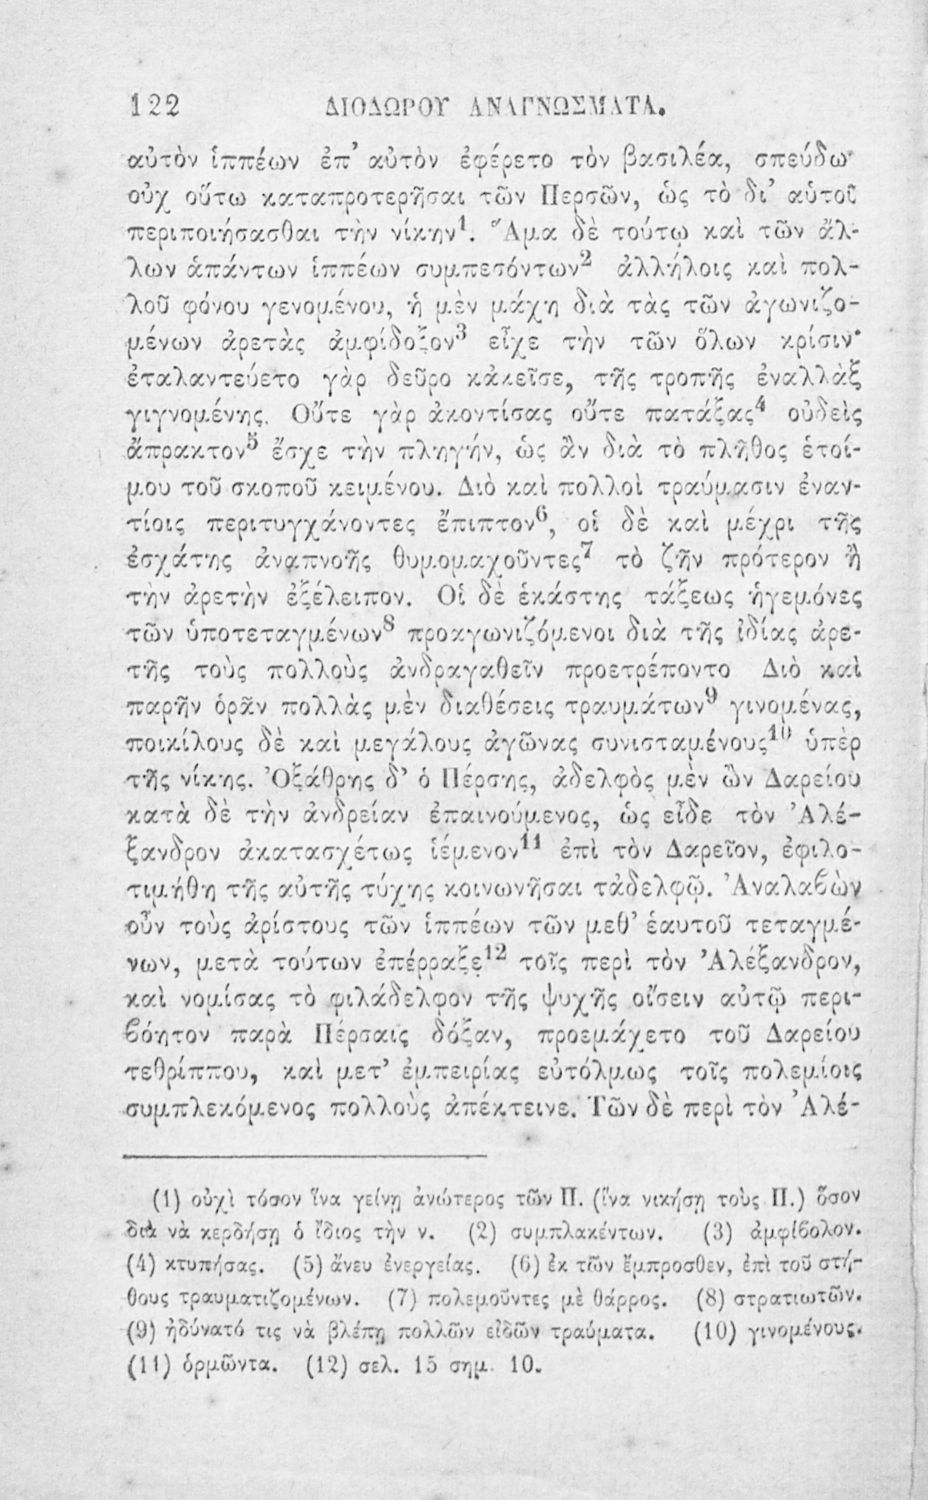 122 ΔΙΟΔΩΡΟΥ ΑΝΑΓΝΩΣΜΑΤΑ.
αὐτὸν ἱππέων ἐπ’ αὐτὸν ἐφέρετο τὸν βασιλέα, σπεύδω
οὐχ οὕτω καταπροτερῆσαι τῶν Περσῶν, ὡς τὸ δι’ αὑτοῦ
περιποιήσασθαι τὴν νίκην¹. Ἅμα δὲ τούτῳ καὶ τῶν ἄλ-
λων ἁπάντων ἱππέων συμπεσόντων² ἀλλήλοις καὶ πολ-
λοῦ φόνου γενομένου, ἡ μὲν μάχη διὰ τὰς τῶν ἀγωνιζο-
μένων ἀρετὰς ἀμφίδοξον³ εἶχε τὴν τῶν ὅλων κρίσιν·
ἐταλαντεύετο γὰρ δεῦρο κἀκεῖσε, τῆς τροπῆς ἐναλλὰξ
γιγνομένης. Οὔτε γὰρ ἀκοντίσας οὔτε πατάξας⁴ οὐδεὶς
ἄπρακτον⁵ ἔσχε τὴν πληγήν, ὡς ἂν διὰ τὸ πλῆθος ἑτοί-
μου τοῦ σκοποῦ κειμένου. Διὸ καὶ πολλοὶ τραύμασιν ἐναν-
τίοις περιτυγχάνοντες ἔπιπτον⁶, οἱ δὲ καὶ μέχρι τῆς
ἐσχάτης ἀναπνοῆς θυμομαχοῦντες⁷ τὸ ζῆν πρότερον ἢ
τὴν ἀρετὴν ἐξέλειπον. Οἱ δὲ ἑκάστης τάξεως ἡγεμόνες
τῶν ὑποτεταγμένων⁸ προαγωνιζόμενοι διὰ τῆς ἰδίας ἀρε-
τῆς τοὺς πολλοὺς ἀνδραγαθεῖν προετρέποντο Διὸ καὶ
παρῆν ὁρᾶν πολλὰς μὲν διαθέσεις τραυμάτων⁹ γινομένας,
ποικίλους δὲ καὶ μεγάλους ἀγῶνας συνισταμένους¹⁰ ὑπὲρ
τῆς νίκης. Ὀξάθρης δ’ ὁ Πέρσης, ἀδελφὸς μὲν ὢν Δαρείου
κατὰ δὲ τὴν ἀνδρείαν ἐπαινούμενος, ὡς εἶδε τὸν Ἀλέ-
ξανδρον ἀκατασχέτως ἱέμενον¹¹ ἐπὶ τὸν Δαρεῖον, ἐφιλο-
τιμήθη τῆς αὐτῆς τύχης κοινωνῆσαι τἀδελφῷ. Ἀναλαβὼν
οὖν τοὺς ἀρίστους τῶν ἱππέων τῶν μεθ’ ἑαυτοῦ τεταγμέ-
νων, μετὰ τούτων ἐπέρραξε¹² τοῖς περὶ τὸν Ἀλέξανδρον,
καὶ νομίσας τὸ φιλάδελφον τῆς ψυχῆς οἴσειν αὐτῷ περι-
βόητον παρὰ Πέρσαις δόξαν, προεμάχετο τοῦ Δαρείου
τεθρίππου, καὶ μετ’ ἐμπειρίας εὐτόλμως τοῖς πολεμίοις
συμπλεκόμενος πολλοὺς ἀπέκτεινε. Τῶν δὲ περὶ τὸν Ἀλέ-
(1) οὐχὶ τόσον ἵνα γείνῃ ἀνώτερος τῶν Π. (ἵνα νικήσῃ τοὺς Π.) ὅσον
διὰ νὰ κερδήσῃ ὁ ἴδιος τὴν ν. (2) συμπλακέντων. (3) ἀμφίβολον.
(4) κτυπήσας. (5) ἄνευ ἐνεργείας. (6) ἐκ τῶν ἔμπροσθεν, ἐπὶ τοῦ στή-
θους τραυματιζομένων. (7) πολεμοῦντες μὲ θάρρος. (8) στρατιωτῶν.
(9) ἠδύνατό τις νὰ βλέπῃ πολλῶν εἰδῶν τραύματα. (10) γινομένους.
(11) ὁρμῶντα. (12) σελ. 15 σημ. 10.